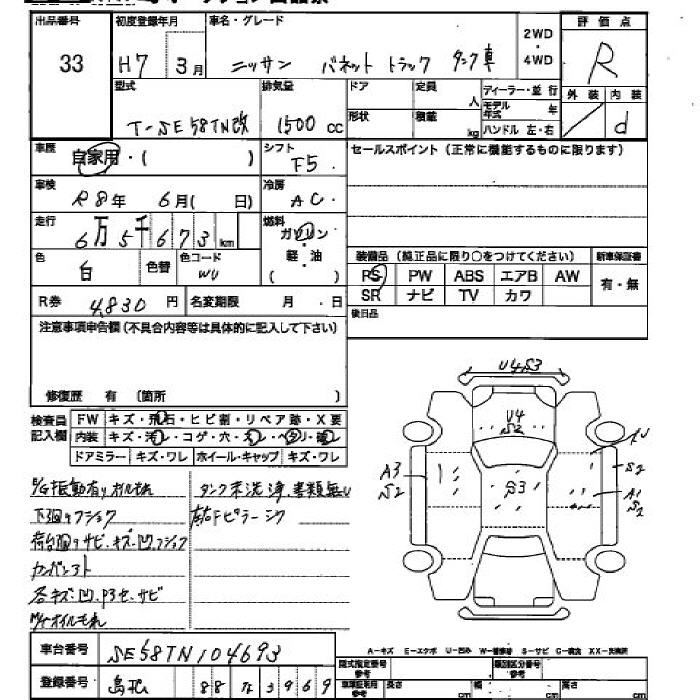 出品番号
33
初度登録年月
H7 3月
車名・グレード
ニッサン バネット トラック タンク車
2WD
・
4WD
評価点
R
外装 内装
d
型式
T-SE58TN改
排気量
1500 cc
ドア
定員
人
形状
積載
kg
ディーラー・並行
モデル年式 年
ハンドル 左・右
車歴
自家用・( )
シフト
F5
セールスポイント(正常に機能するものに限ります)
車検
R8年 6月( 日)
冷房
AC
走行
6万5千673km
燃料
ガソリン
・
軽・油
( )
色
白
色替
色コード
装備品(純正品に限り○をつけてください)
新車保証書
PS PW ABS エアB AW
有・無
SR ナビ TV カワ
R券 4,830円
名変期限 月・日
後日品
注意事項申告欄(不具合内容等は具体的に記入して下さい)
修復歴 有 (箇所 )
検査員記入欄
FW キズ・飛石・ヒビ割・リペア跡・X要
内装 キズ・汚レ・コゲ・穴・スレ・ヘタリ・破レ
ドアミラー キズ・ワレ ホイール・キャップ キズ・ワレ
E/G振動有り オイルモれ
タンク未洗浄、書類無し
荷台回りサビ、キズ、凹
各キズ、凹
U4S3
U4
S2
A3
S2
S3
S2
A1
S2
A-キズ E-エクボ U-凹み W-補修跡 S-サビ C-腐食 XX-交換済
車台番号
SE58TN104693
登録番号
型式指定番号
参考
類別区分番号
参考
長さ cm
幅 cm
高さ cm